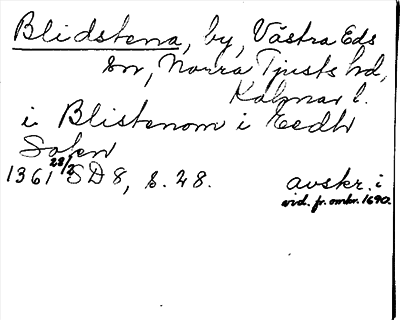 Blidstena, by, Västra Eds
sn, Norra Tjusts hd,
Kalmar l.
i Blistenom i Eedh
Soken
1361 28/2 SD 8, s. 28. avskr. i
vid. fr. omkr. 1690.